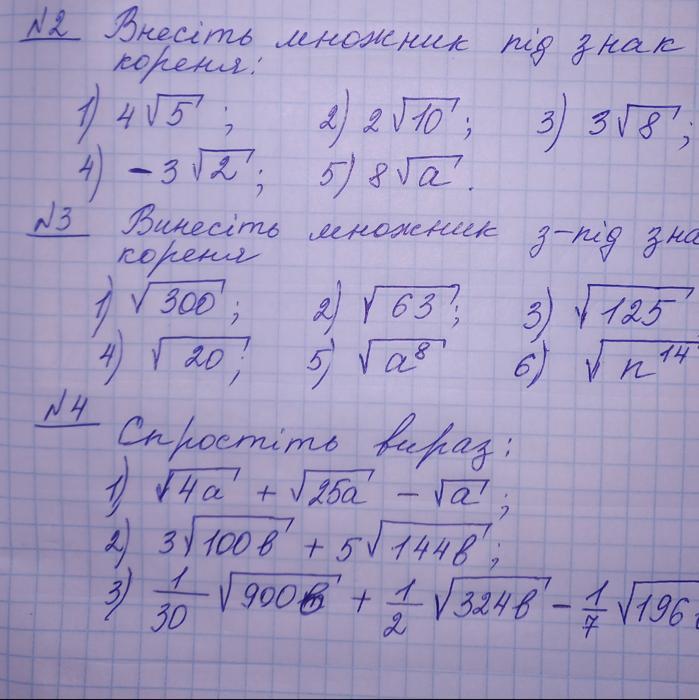 №2 Внесіть множник під знак
кореня:
1) 4√5; 2) 2√10; 3) 3√8;
4) -3√2; 5) 8√a.
№3 Винесіть множник з-під зна
кореня
1) √300; 2) √63; 3) √125
4) √20; 5) √a⁸ 6) √n¹⁴
№4 Спростіть вираз:
1) √4a + √25a - √a;
2) 3√100b + 5√144b;
3) 1/30 √900b + 1/2 √324b - 1/7 √196